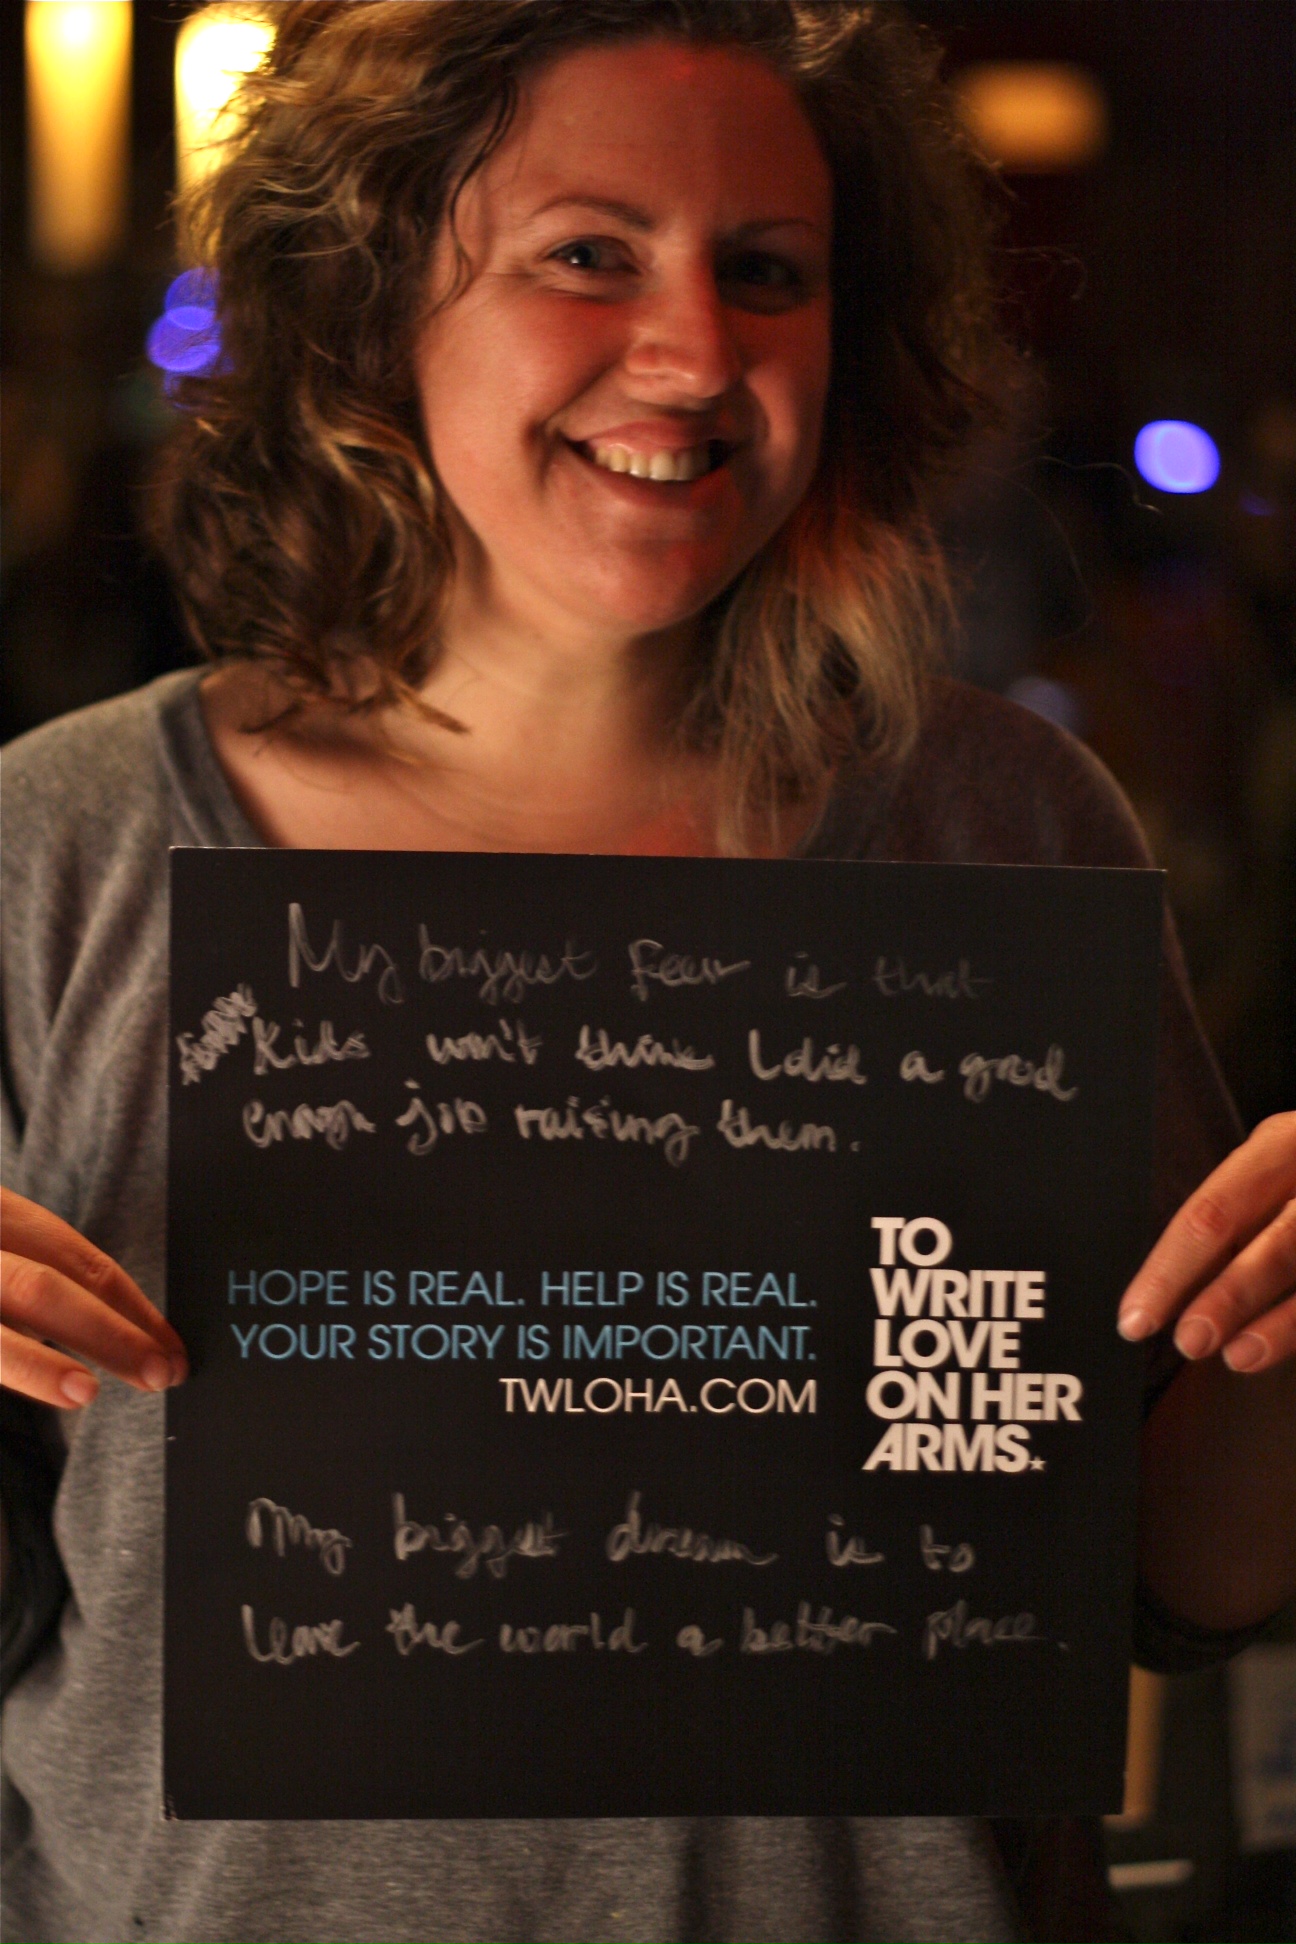 My biggest fear is that
Kids won't think I did a good
enough job raising them.
HOPE IS REAL. HELP IS REAL.
YOUR STORY IS IMPORTANT.
TWLOHA.COM
TO
WRITE
LOVE
ON HER
ARMS.
My biggest dream is to
leave the world a better place.